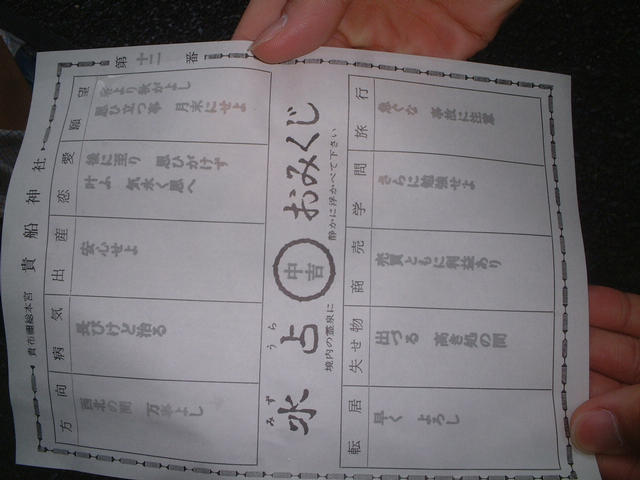 貴布禰総本宮 貴船神社 第十二番
方向
西北の間 万事よし
病気
長びけど治る
出産
安心せよ
恋愛
後に至り 思ひがけず
叶ふ 気永く思へ
願望
より秋がよし
思ひ立つ事 月末にせよ
みず うら
水占 中吉 おみくじ
境内の霊泉に 静かに浮かべて下さい
転居
早く よろし
失せ物
出づる 高き処の間
商売
売買ともに利益あり
学問
さらに勉強せよ
旅行
急ぐな 事故に注意